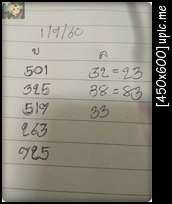 1/9/60
บ ล
501 32 = 23
325 38 = 83
517 33
263
725
[450x600] upic.me